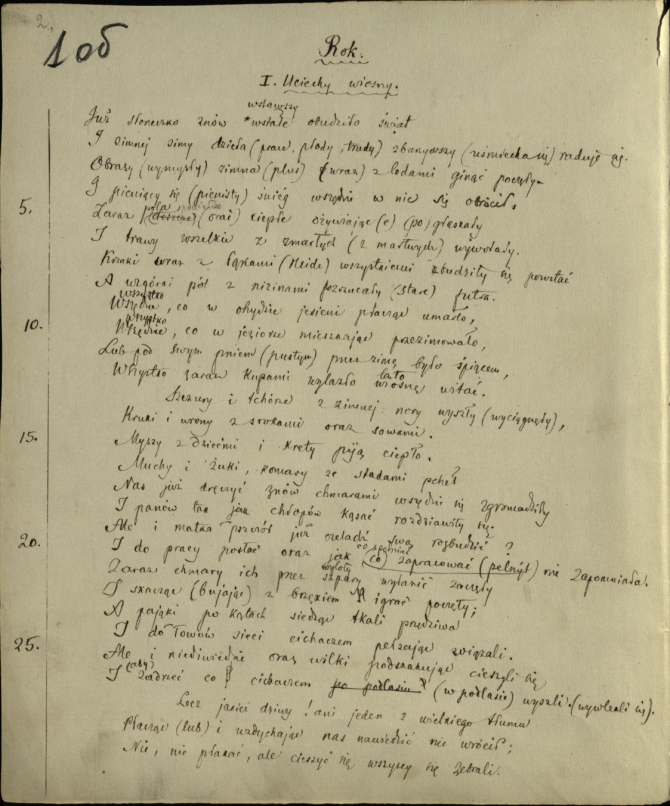 2.
108
Rok.
I. Uciechy wiosny.
wstawszy
Już słoneczko znów *wstałe obudziło świat
I zimnej zimy dzieła (prace, płody, trudy) zburzywszy (uśmiecha się) raduje się.
Obrazy (wymysły) zimna (plus) (wraz) z lodami ginąć poczęły.
I pieniący się (pienisty) śnieg wszędzie w nic się obrócił.
5. Zaraz pola (oraz) ciepłe ożywiając(e) (po)głaskały
I trawy wszelkie z zmarłych (z martwych) wywołały.
Krzaki wraz z łąkami (Heide) wszystkiemi zbudziły się powstać
A wzgórki pól z nizinami porzucały (stare) futra.
wszystko
Wszędzie, co w ohydzie jesieni płacząc umarło,
wszystko
10. Wszędzie, co w jeziorze mieszkając przezimowało,
Lub pod swym pniem (pustym) przez zimę było śpiącem,
lato
Wszystko zaraz kupami wylazło wiosnę witać.
Szczury i tchórze z zimnej nory wyszły (wyciągnęły),
Kruki i wrony z srokami oraz sowami.
15. Myszy z dziećmi i krety piją ciepło.
Muchy i żuki, komary ze stadami pcheł
Nas już dręczyć znów chmarami wszędzie się zgromadziły
I panów tak jak chłopów kąsać rozdziawiły się.
Ale i matka pszczół już czeladź swą rozbudzić?
20. I do pracy posłać oraz jak (co) zapracować (pełnić) nie zapomniała.
Zaraz chmary ich przez szpary wyłazić zaczęły
I skacząc (bujając) z brzękiem igrać poczęły;
A pająki po kątach siedząc tkali przędziwa
I do łowów sieci cichaczem pełzając związali.
25. Ale i niedźwiedzie oraz wilki podskakując cieszyli się
I (aby) zadrzeć co cichaczem po podlasiu (w podlasie) wyszli. (wywlekli się).
Lecz jakieś dziwy! ani jeden z wielkiego tłumu
Płacząc (lub) i wzdychając nas nawiedzić nie wrócił;
Nie, nie płakać, ale cieszyć się wszyscy się zebrali.